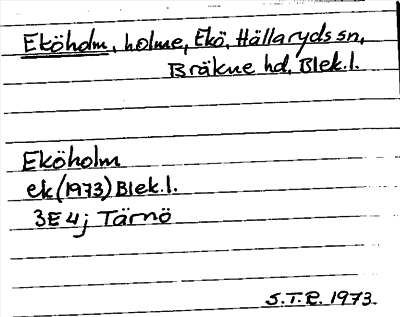 Eköholm, holme, Ekö, Hällaryds sn,
Bräkne hd, Blek.l.
Eköholm
ek (1973) Blek.l.
3E 4j Tärnö
S.T.R. 1973.